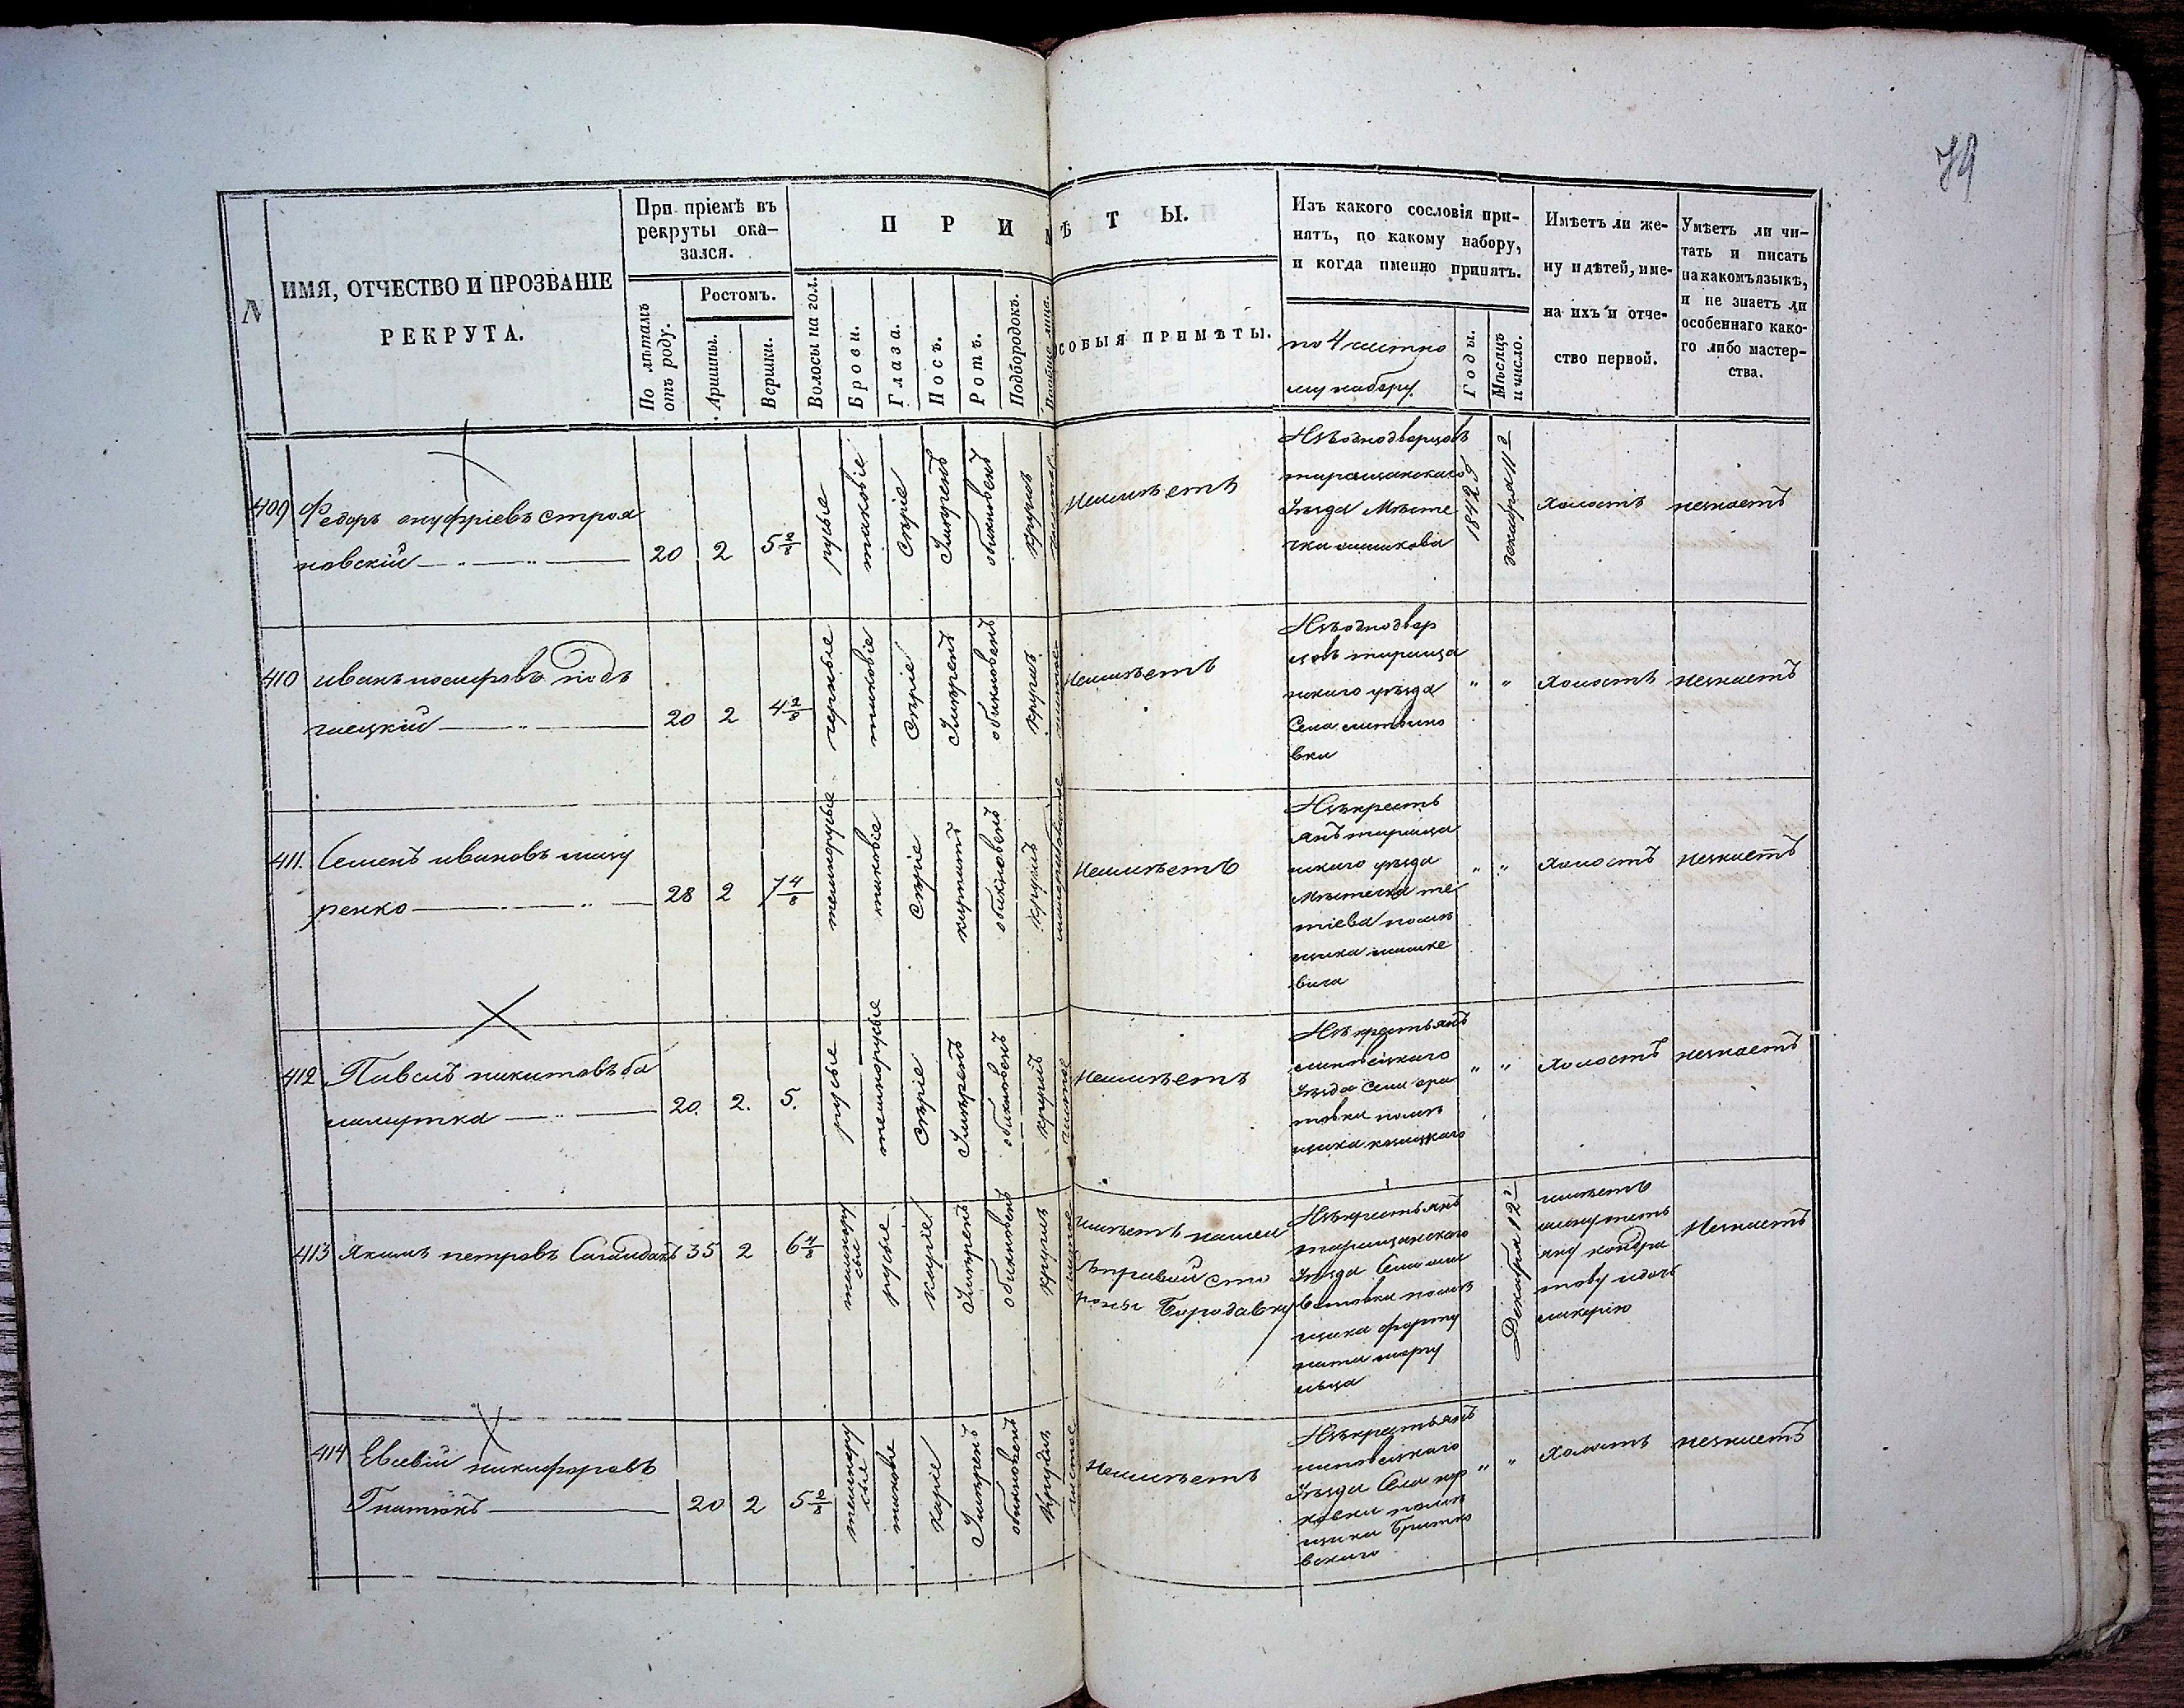 79
N
ИМЯ, ОТЧЕСТВО И ПРОЗВАНІЕ
РЕКРУТА.
При пріемѣ въ
рекруты ока-
зался.
По лѣтамъ
отъ роду.
Ростомъ.
Аршины.
Вершки.
П Р И
Ѣ Т Ы.
Волосы на гол.
Брови.
Глаза.
Носъ.
Ротъ.
Подбородокъ.
СОБЫЯ ПРИМѢТЫ.
Изъ какого сословія при-
нятъ, по какому набору,
и когда именно принятъ.
по 4 частно
му набору.
Годы.
Мѣсяцъ
и число.
Имѣетъ ли же-
ну и дѣтей, име-
на ихъ и отче-
ство первой.
Умѣетъ ли чи-
тать и писать
на какомъ языкѣ,
и не знаетъ ли
особеннаго како-
го либо мастер-
ства.
409
Федоръ ануфріевъ строя
новскій
20
2
5 2/8
русые
таковіе
Сѣріе
Умѣренъ
обикновенъ
кругла
чистое
Неимѣетъ
Изъ однодворцовъ
таращанскаго
Уѣзда Мѣсте
чка
1842
декабря 11
холостъ
незнаетъ
410
иванъ иосифовъ подъ
гаецкій
20
2
4 2/8
черные
таковіе
Сѣріе
Умѣренъ
обикновенъ
круглъ
Неимѣетъ
Изъ однодвор
цовъ тараща
нскаго уѣзда
Села литвино
вки
" "
холостъ
незнаетъ
411.
Семенъ ивановъ мазу
ренко
28
2
7 4/8
темнорусые
таковіе
Сѣріе
обикновенъ
круглъ
Неимѣетъ
Изъ кресть
янъ тараща
нскаго уѣзда
Мѣстечка те
тіева помѣ
щика
" "
холостъ
незнаетъ
412
Павелъ никитовъ ба
ламутка
20.
2.
5.
русые
темнорусые
Сѣріе
Умѣренъ
обикновенъ
круглъ
чистое
Неимѣетъ
Изъ крестьянъ
липовецкаго
Уѣзда Села ора
товки помѣ
щика
" "
холостъ
незнаетъ
413
Якимъ петровъ Сагайдакъ
35
2
6 4/8
темнору
сые
русые
каріе
Умѣренъ
обикновенъ
круглъ
имѣетъ нашеи
Съ правой сто
роны Бородавку
Изъ крестьянъ
таращанскаго
Уѣзда Села
помѣ
щика форту
ната
Декабря 12
имѣетъ
жену тать
яну кондра
тову и дочь
лукерію
Незнаетъ
414
Евсевій никифоровъ
Гнатюкъ
20
2
5 2/8
темнору
сые
таковіе
каріе
Умѣренъ
обикновенъ
круглъ
чистое
Неимѣетъ
Изъ крестьянъ
липовецкаго
Уѣзда Села
помѣ
щика
" "
холостъ
незнаетъ